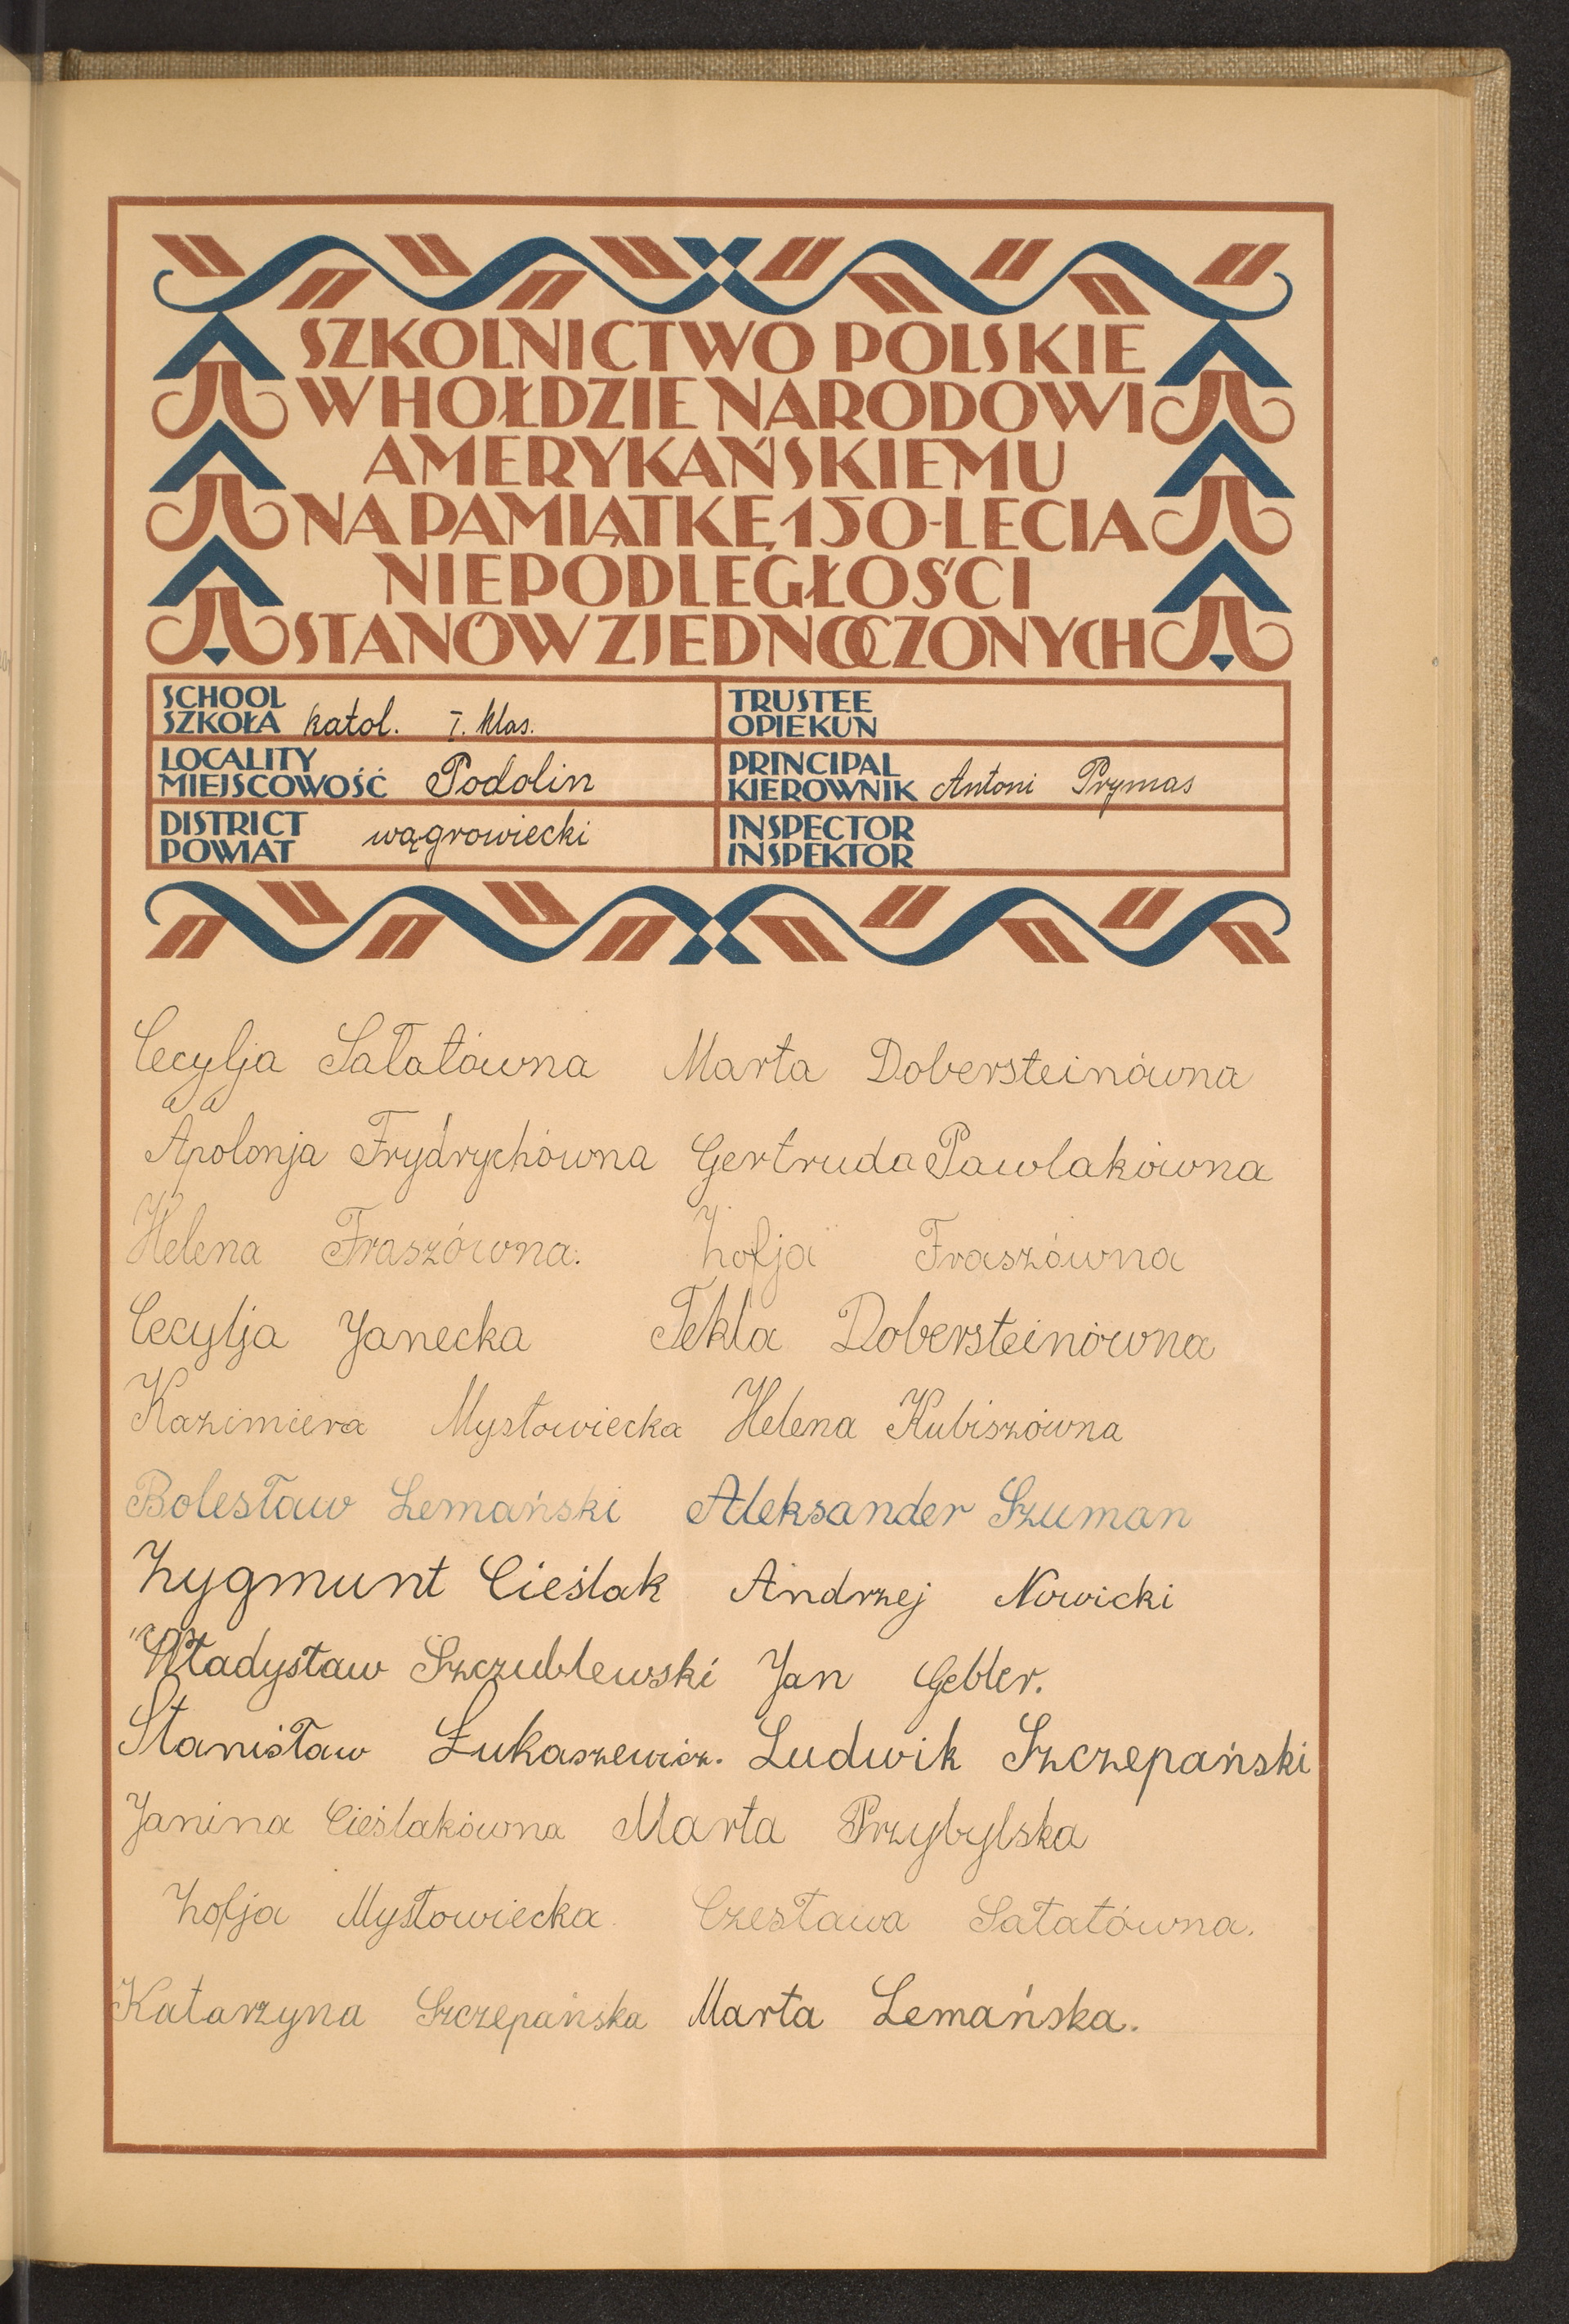 SZKOLNICTWO POLSKIE
W HOŁDZIE NARODOWI
AMERYKAŃSKIEMU
NA PAMIĄTKĘ 150-LECIA
NIEPODLEGŁOŚCI
STANÓW ZJEDNOCZONYCH
SCHOOL
SZKOŁA katol. I. klas.
TRUSTEE
OPIEKUN
LOCALITY
MIEJSCOWOŚĆ Podolin
PRINCIPAL
KIEROWNIK Antoni Prymas
DISTRICT
POWIAT wągrowiecki
INSPECTOR
INSPEKTOR
Cecylja Sałatówna Marta Dobersteinówna
Apolonja Frydrychówna Gertruda Pawlakówna
Helena Fraszówna. Zofja Fraszówna
Cecylja Janecka Tekla Dobersteinówna
Kazimiera Mysłowiecka Helena Kubiszówna
Bolesław Lemański Aleksander Szuman
Zygmunt Cieślak Andrzej Nowicki
Władysław Szczublewski Jan Gebler.
Stanisław Łukaszewicz. Ludwik Szczepański
Janina Cieślakówna Marta Przybylska
Zofja Mysłowiecka Czesława Sałatówna.
Katarzyna Szczepańska Marta Lemańska.